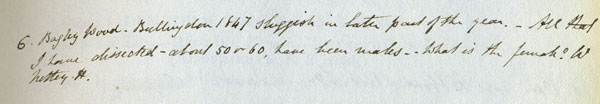 6. Bagley Wood - Bullingdon 1847 sluggish in later part of the year. - All that
I have dissected - about 50 or 60, have been males - What is the female? W
Netley. H.